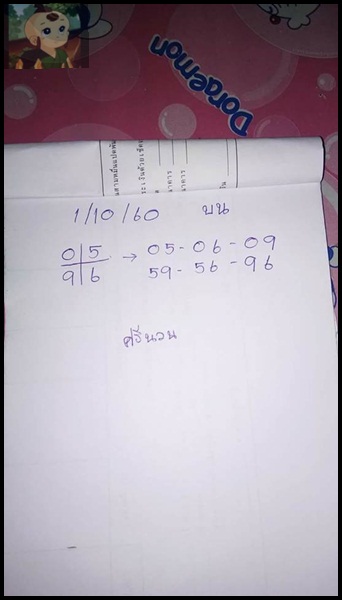 Doraemon
1/10/60 บน
0|5 → 05-06-09
9|6 59-56-96
ศรีนวน